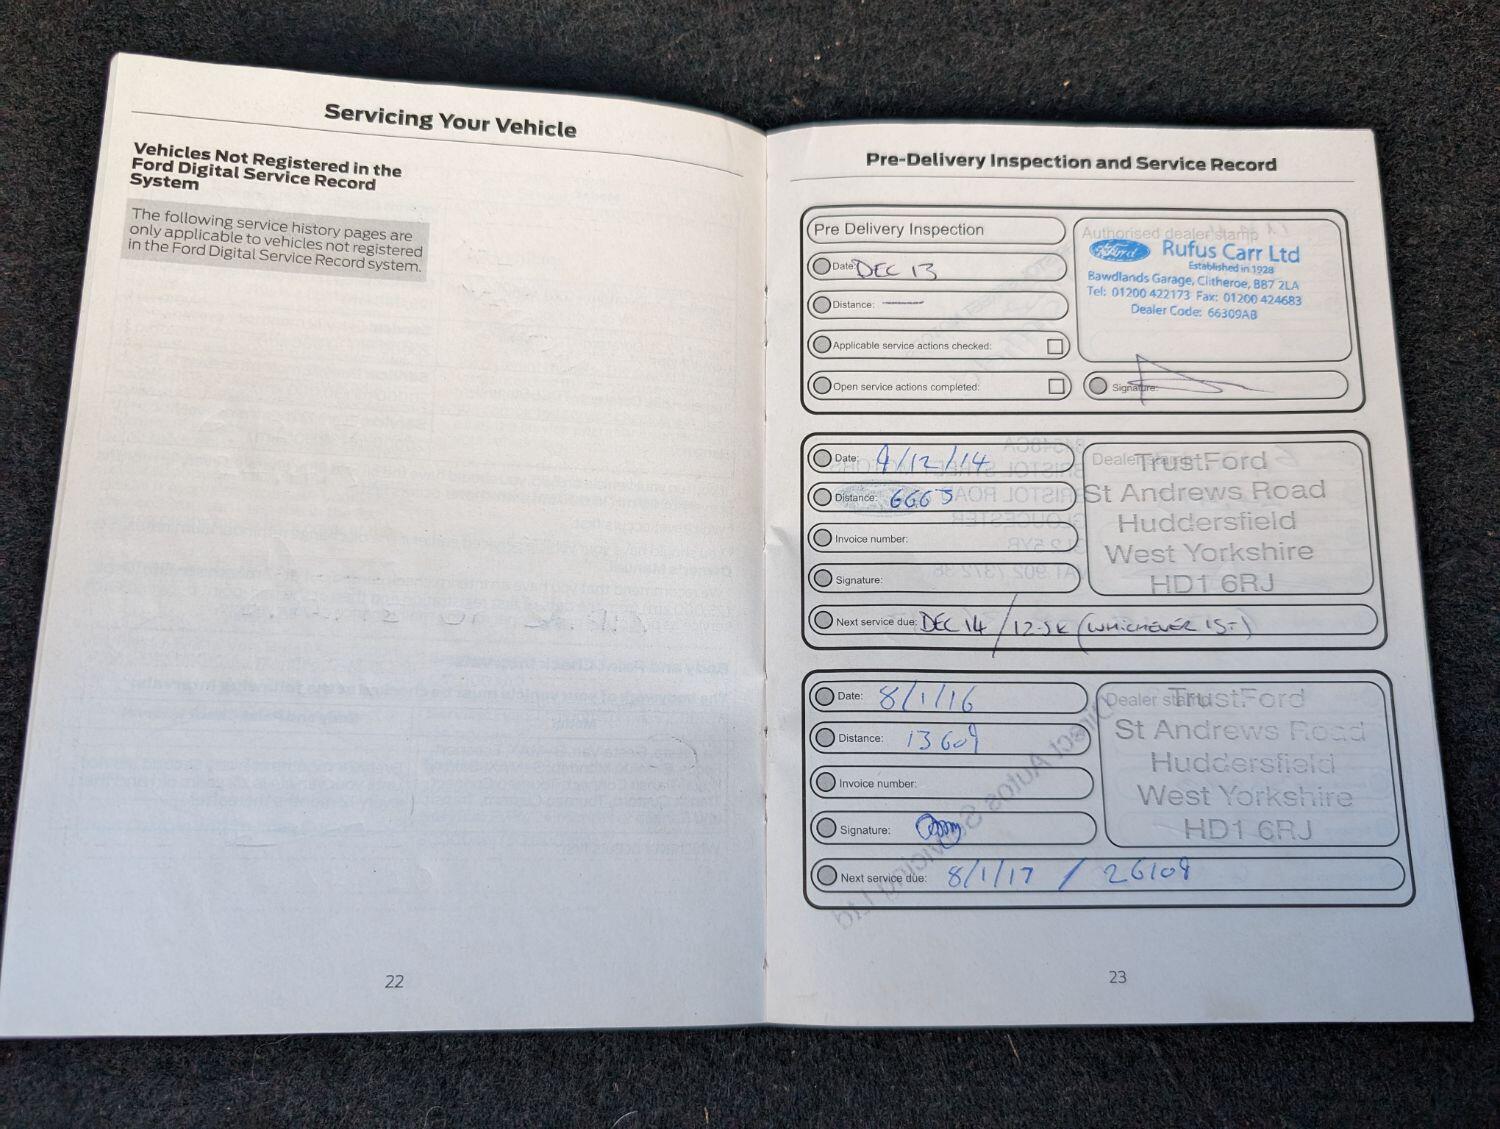 Servicing Your Vehicle
Vehicles Not Registered in the
Ford Digital Service Record
System
The following service history pages are
only applicable to vehicles not registered
in the Ford Digital Service Record system.
22
Pre-Delivery Inspection and Service Record
Pre Delivery Inspection
Date: DEC 13
Distance: —
Applicable service actions checked:
Open service actions completed:
Authorised dealer stamp
Ford
Rufus Carr Ltd
Established in 1928
Bawdlands Garage, Clitheroe, BB7 2LA
Tel: 01200 422173 Fax: 01200 424683
Dealer Code: 66309AB
Signature:
Date: 9/12/14
Distance: 6665
Invoice number:
Signature:
Dealer stamp
TrustFord
St Andrews Road
Huddersfield
West Yorkshire
HD1 6RJ
Next service due: DEC 14 / 12.5K (WHICHEVER 1ST)
Date: 8/1/16
Distance: 13609
Invoice number:
Signature:
Dealer stamp
TrustFord
St Andrews Road
Huddersfield
West Yorkshire
HD1 6RJ
Next service due: 8/1/17 / 26109
23